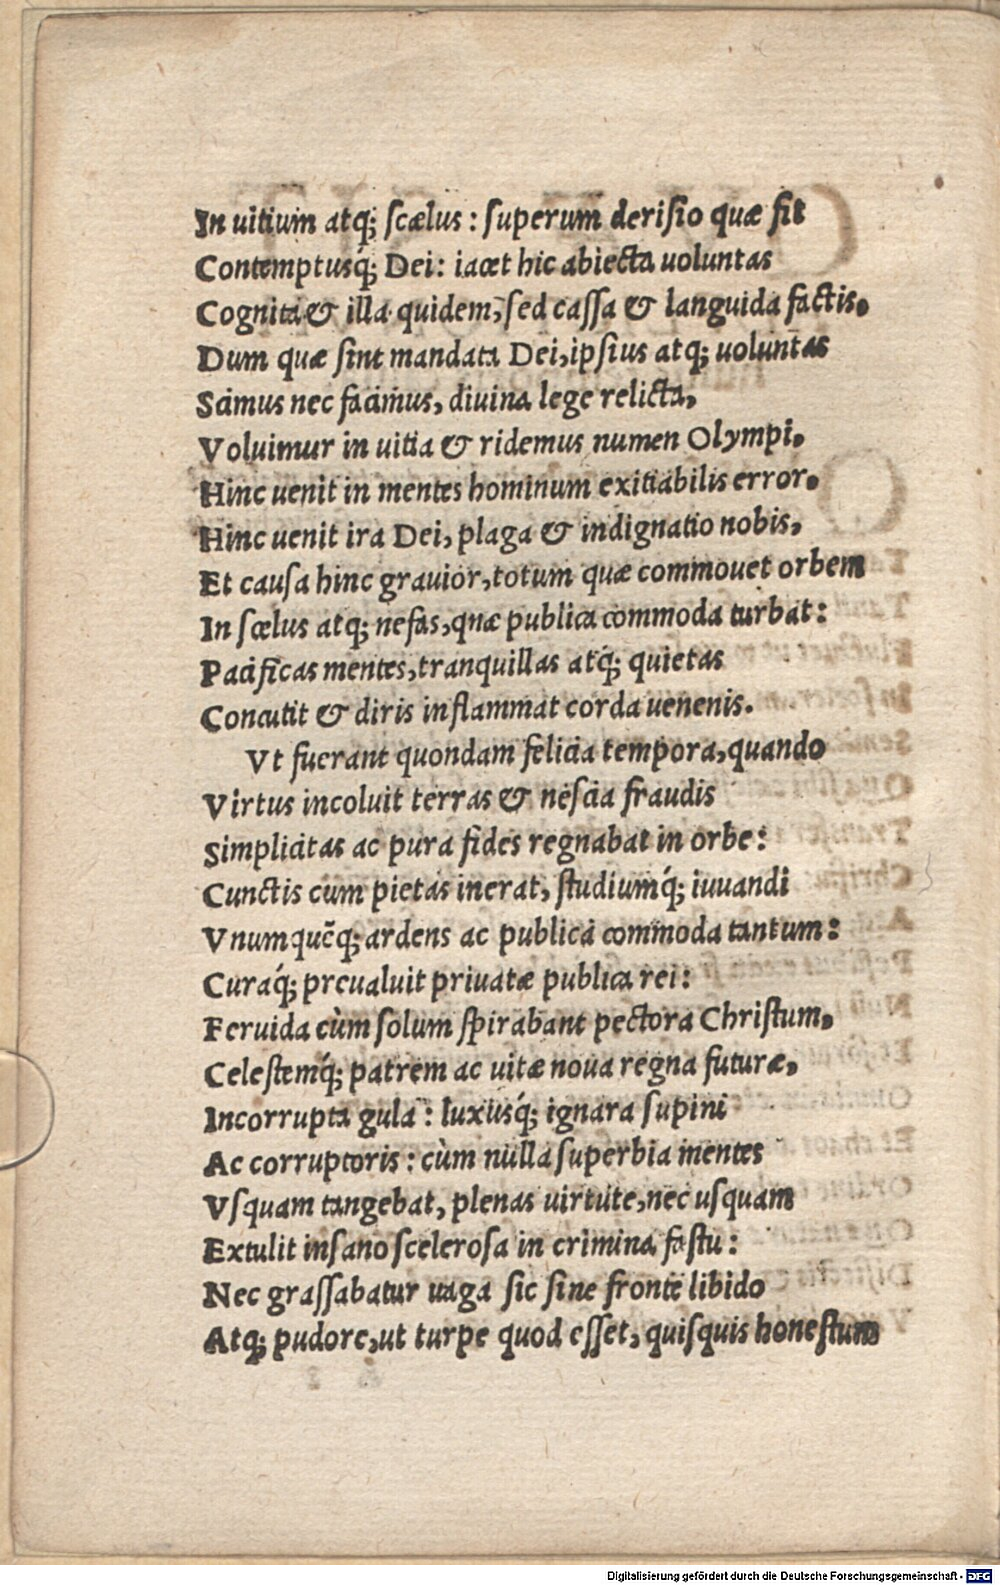 In uitium atq; scælus: superum derisio quæ fit
Contemptusq́; Dei: iacet hic abiecta uoluntas
Cognita & illa quidem, sed cassa & languida factis.
Dum quæ sint mandata Dei, ipsius atq; uoluntas
Scimus nec facimus, diuina lege relicta,
Voluimur in uitia & ridemus numen Olympi.
Hinc uenit in mentes hominum exitiabilis error.
Hinc uenit ira Dei, plaga & indignatio nobis,
Et causa hinc grauior, totum quæ commouet orbem
In scelus atq; nefas, quæ publica commoda turbat:
Pacificas mentes, tranquillas atq́; quietas
Concutit & diris inflammat corda uenenis.
Vt fuerant quondam felicia tempora, quando
Virtus incoluit terras & nescia fraudis
Simplicitas ac pura fides regnabat in orbe:
Cunctis cum pietas inerat, studiumq́; iuuandi
Vnumquẽq; ardens ac publica commoda tantum:
Curaq́; preualuit priuatæ publica rei:
Feruida cùm solum spirabant pectora Christum,
Celestemq́; patrem ac uitæ noua regna futuræ,
Incorrupta gula: luxusq́; ignara supini
Ac corruptoris: cùm nulla superbia mentes
Vsquam tangebat, plenas uirtute, nec usquam
Extulit insano scelerosa in crimina fastu:
Nec grassabatur uaga sic sine fronte libido
Atq; pudore, ut turpe quod esset, quisquis honestum
Digitalisierung gefördert durch die Deutsche Forschungsgemeinschaft - DFG